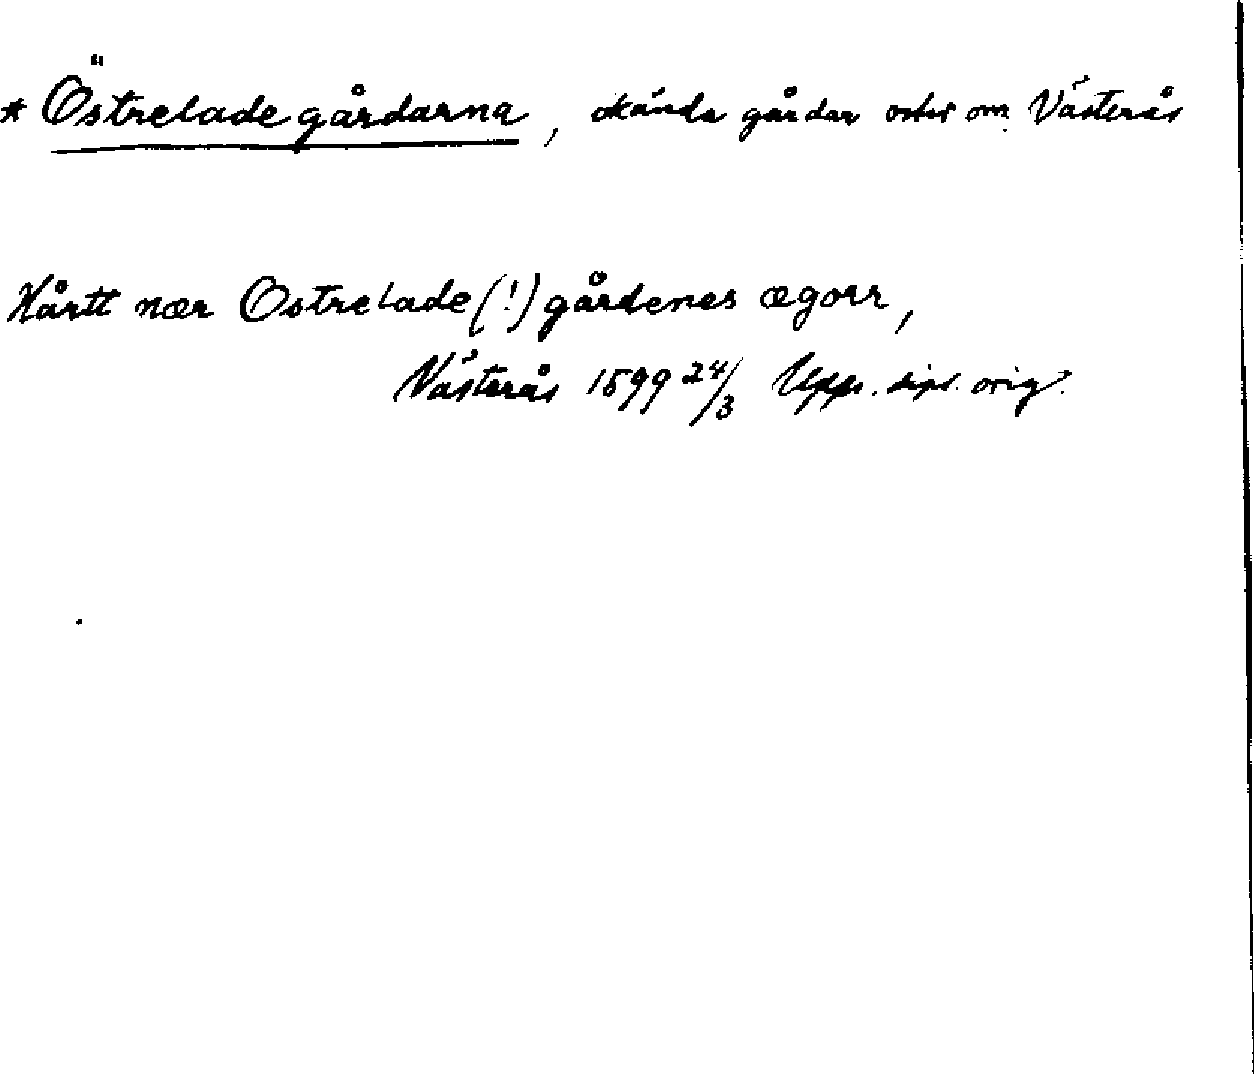 * Östreladegårdarna, okända gårdar öster om Västerås
Hårtt nær Ostrelade(!)gårdenes ægorr,
Västerås 1599 24/3 Upps. dipl. orig.